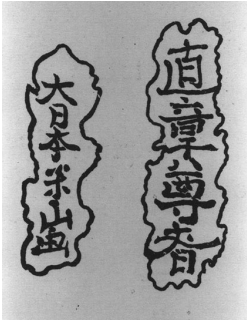 直章尊
大日本米山画